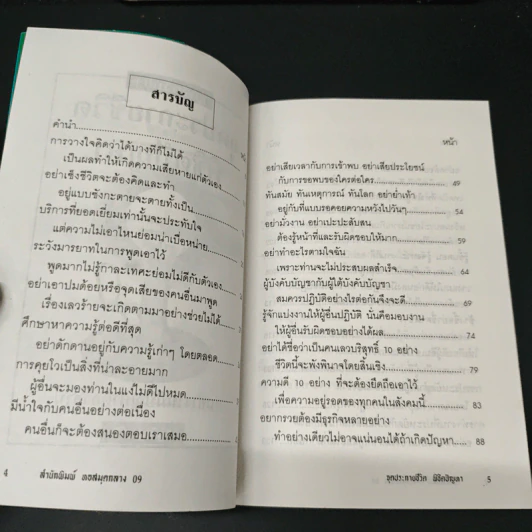 สารบัญ
คำนำ
การวางใจคิดว่าได้บางทีก็ไม่ได้
เป็นผลทำให้เกิดความเสียหายแก่ตัวเอง
อย่าเซ็งชีวิตจะต้องคิดและทำ
อยู่แบบซังกะตายจะตายทั้งเป็น
บริการที่ยอดเยี่ยมเท่านั้นจะประทับใจ
แต่ความไม่เอาไหนย่อมน่าเบื่อหน่าย
ระวังมารยาทในการพูดเอาไว้
พูดมากไม่รู้กาละเทศะย่อมไม่ดีกับตัวเอง
อย่าเอาปมด้อยหรือจุดเสียของคนอื่นมาพูด
เรื่องเลวร้ายจะเกิดตามมาอย่างช่วยไม่ได้
ศึกษาหาความรู้ต่อดีที่สุด
อย่าดักดานอยู่กับความรู้เก่าๆ โดยตลอด
การคุยโวเป็นสิ่งที่น่าละอายมาก
ผู้อื่นจะมองท่านในแง่ไม่ดีไปหมด
มีน้ำใจกับคนอื่นอย่างต่อเนื่อง
คนอื่นก็จะต้องสนองตอบเราเสมอ
4 สำนักพิมพ์ หอสมุดกลาง 09
หน้า
อย่าเสียเวลากับการเข้าพบ อย่าเสียประโยชน์
กับการขอพบของใครต่อใคร 49
ทันสมัย ทันเหตุการณ์ ทันโลก อย่าย่ำเท้า
อยู่กับที่แบบรอคอยความหวังไปวันๆ 54
อย่ามั่วงาน อย่าเปะปะสับสน
ต้องรู้หน้าที่และรับผิดชอบให้มาก 59
อย่าทำอะไรตามใจฉัน
เพราะท่านจะไม่ประสบผลสำเร็จ 64
ผู้บังคับบัญชากับผู้ใต้บังคับบัญชา
สมควรปฏิบัติอย่างไรต่อกันจึงจะดี 69
รู้จักแบ่งงานให้ผู้อื่นปฏิบัติ นั่นคือมอบงาน
ให้ผู้อื่นรับผิดชอบอย่างได้ผล 74
อย่าได้ชื่อว่าเป็นคนเลวบริสุทธิ์ 10 อย่าง
ชีวิตนี้จะพังพินาจโดยสิ้นเชิง 79
ความดี 10 อย่าง ที่จะต้องยึดถือเอาไว้
เพื่อความอยู่รอดของทุกคนในสังคมนี้ 83
อยากรวยต้องมีธุรกิจหลายอย่าง
ทำอย่างเดียวไม่อาจแน่นอนได้ถ้าเกิดปัญหา 88
จุดประกายชีวิต พิชิตปัญหา 5